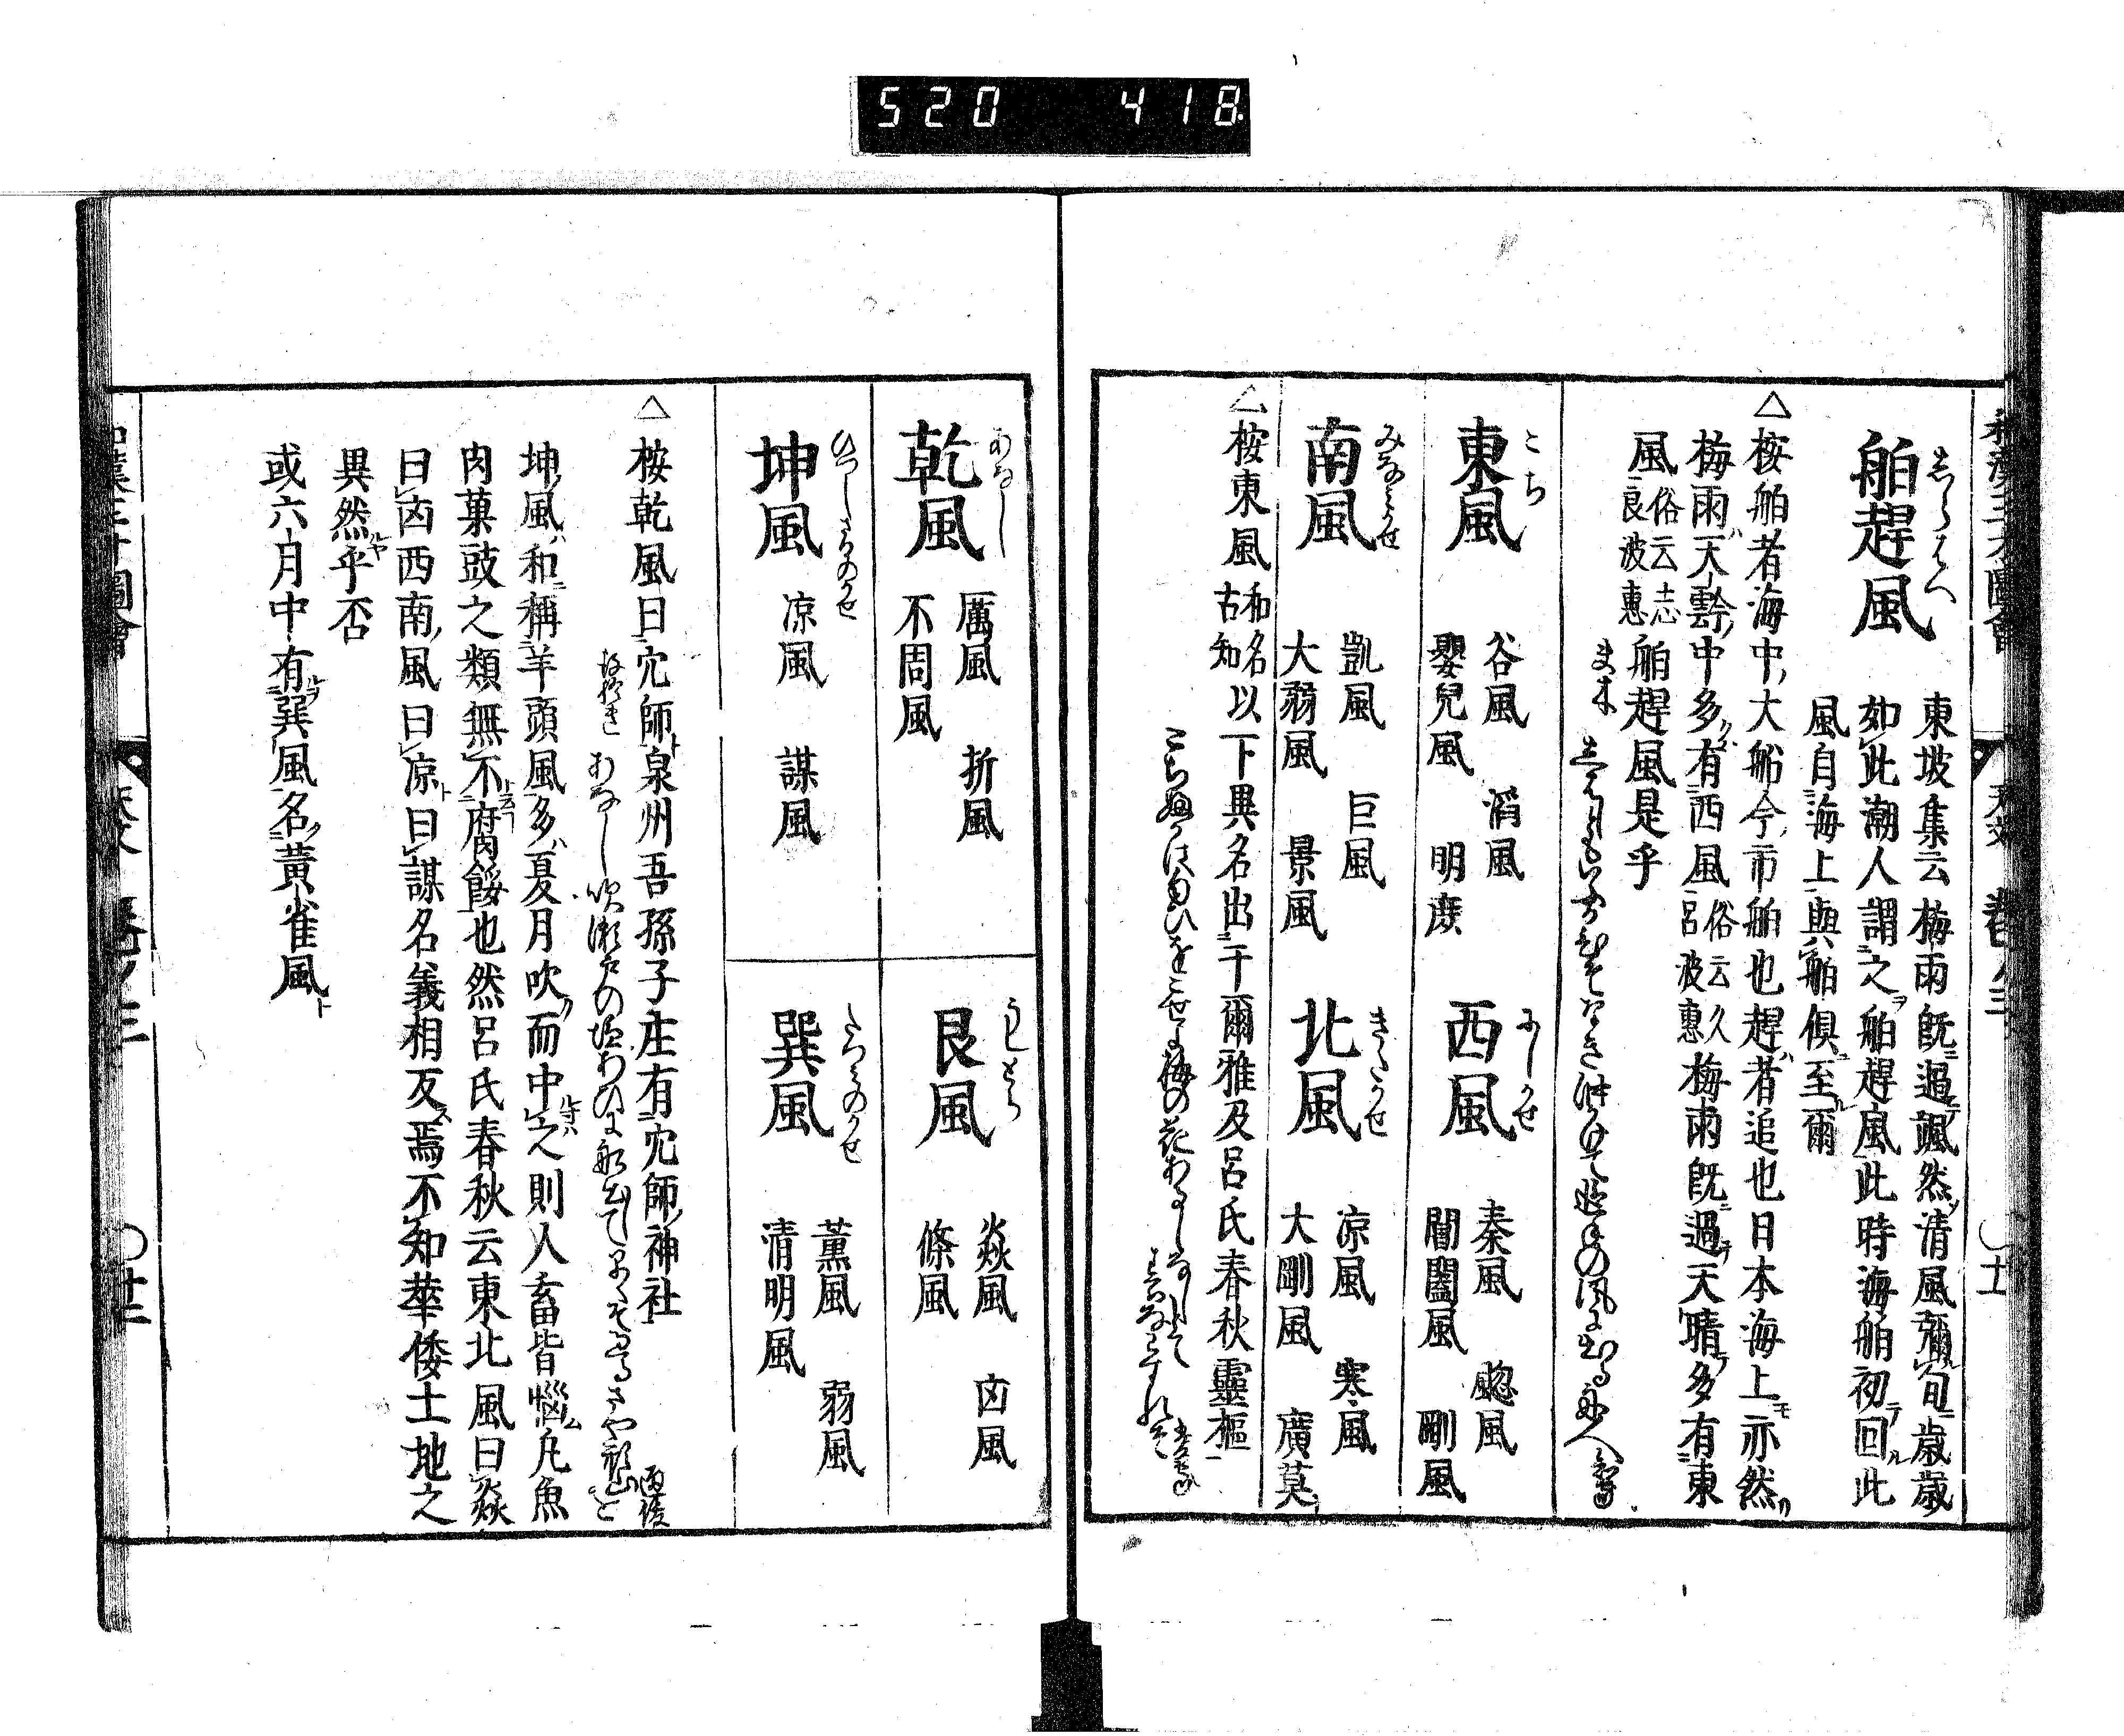 520 418
和漢三才圖會 天文 卷ノ三 〇廿一
舶趕風
東坡集云梅雨既過颯然清風彌旬歳歳
如此潮人謂之舶趕風此時海舶初回此
風自海上與舶俱至爾
△桉舶者海中大船今市舶也趕者追也日本海上亦然
梅雨天霒中多有西風俗云久呂波惠梅雨既過天晴多有東
風俗云志良波惠舶趕風是乎
東風 こち
谷風 滔風
嬰兒風 明庶
西風 にしかせ
秦風 飂風
閶闔風 剛風
南風 みなみかせ
凱風 巨風
大弱風 景風
北風 きたかせ
凉風 寒風
大剛風 廣莫
△桉東風和名古知以下異名出于爾雅及呂氏春秋靈樞
こち吹かはにほひをこせよ梅の花あるしなしとて
乾風 あなし
厲風 折風
不周風
艮風 うしとら
炎風 凶風
條風
坤風 ひつしさるのかせ
凉風 謀風
巽風 たつみのかせ
薫風 弱風
清明風
△桉乾風曰穴師泉州吾孫子庄有穴師神社
坤風和稱羊頭風多夏月吹而中之則人畜皆惱凡魚
肉菓豉之類無不腐餒也然呂氏春秋云東北風曰炎
曰凶西南風曰凉曰謀名義相反焉不知華倭土地之
異然乎否
或六月中有巽風名黃雀風
和漢三才圖會 天文 卷ノ三 〇廿二